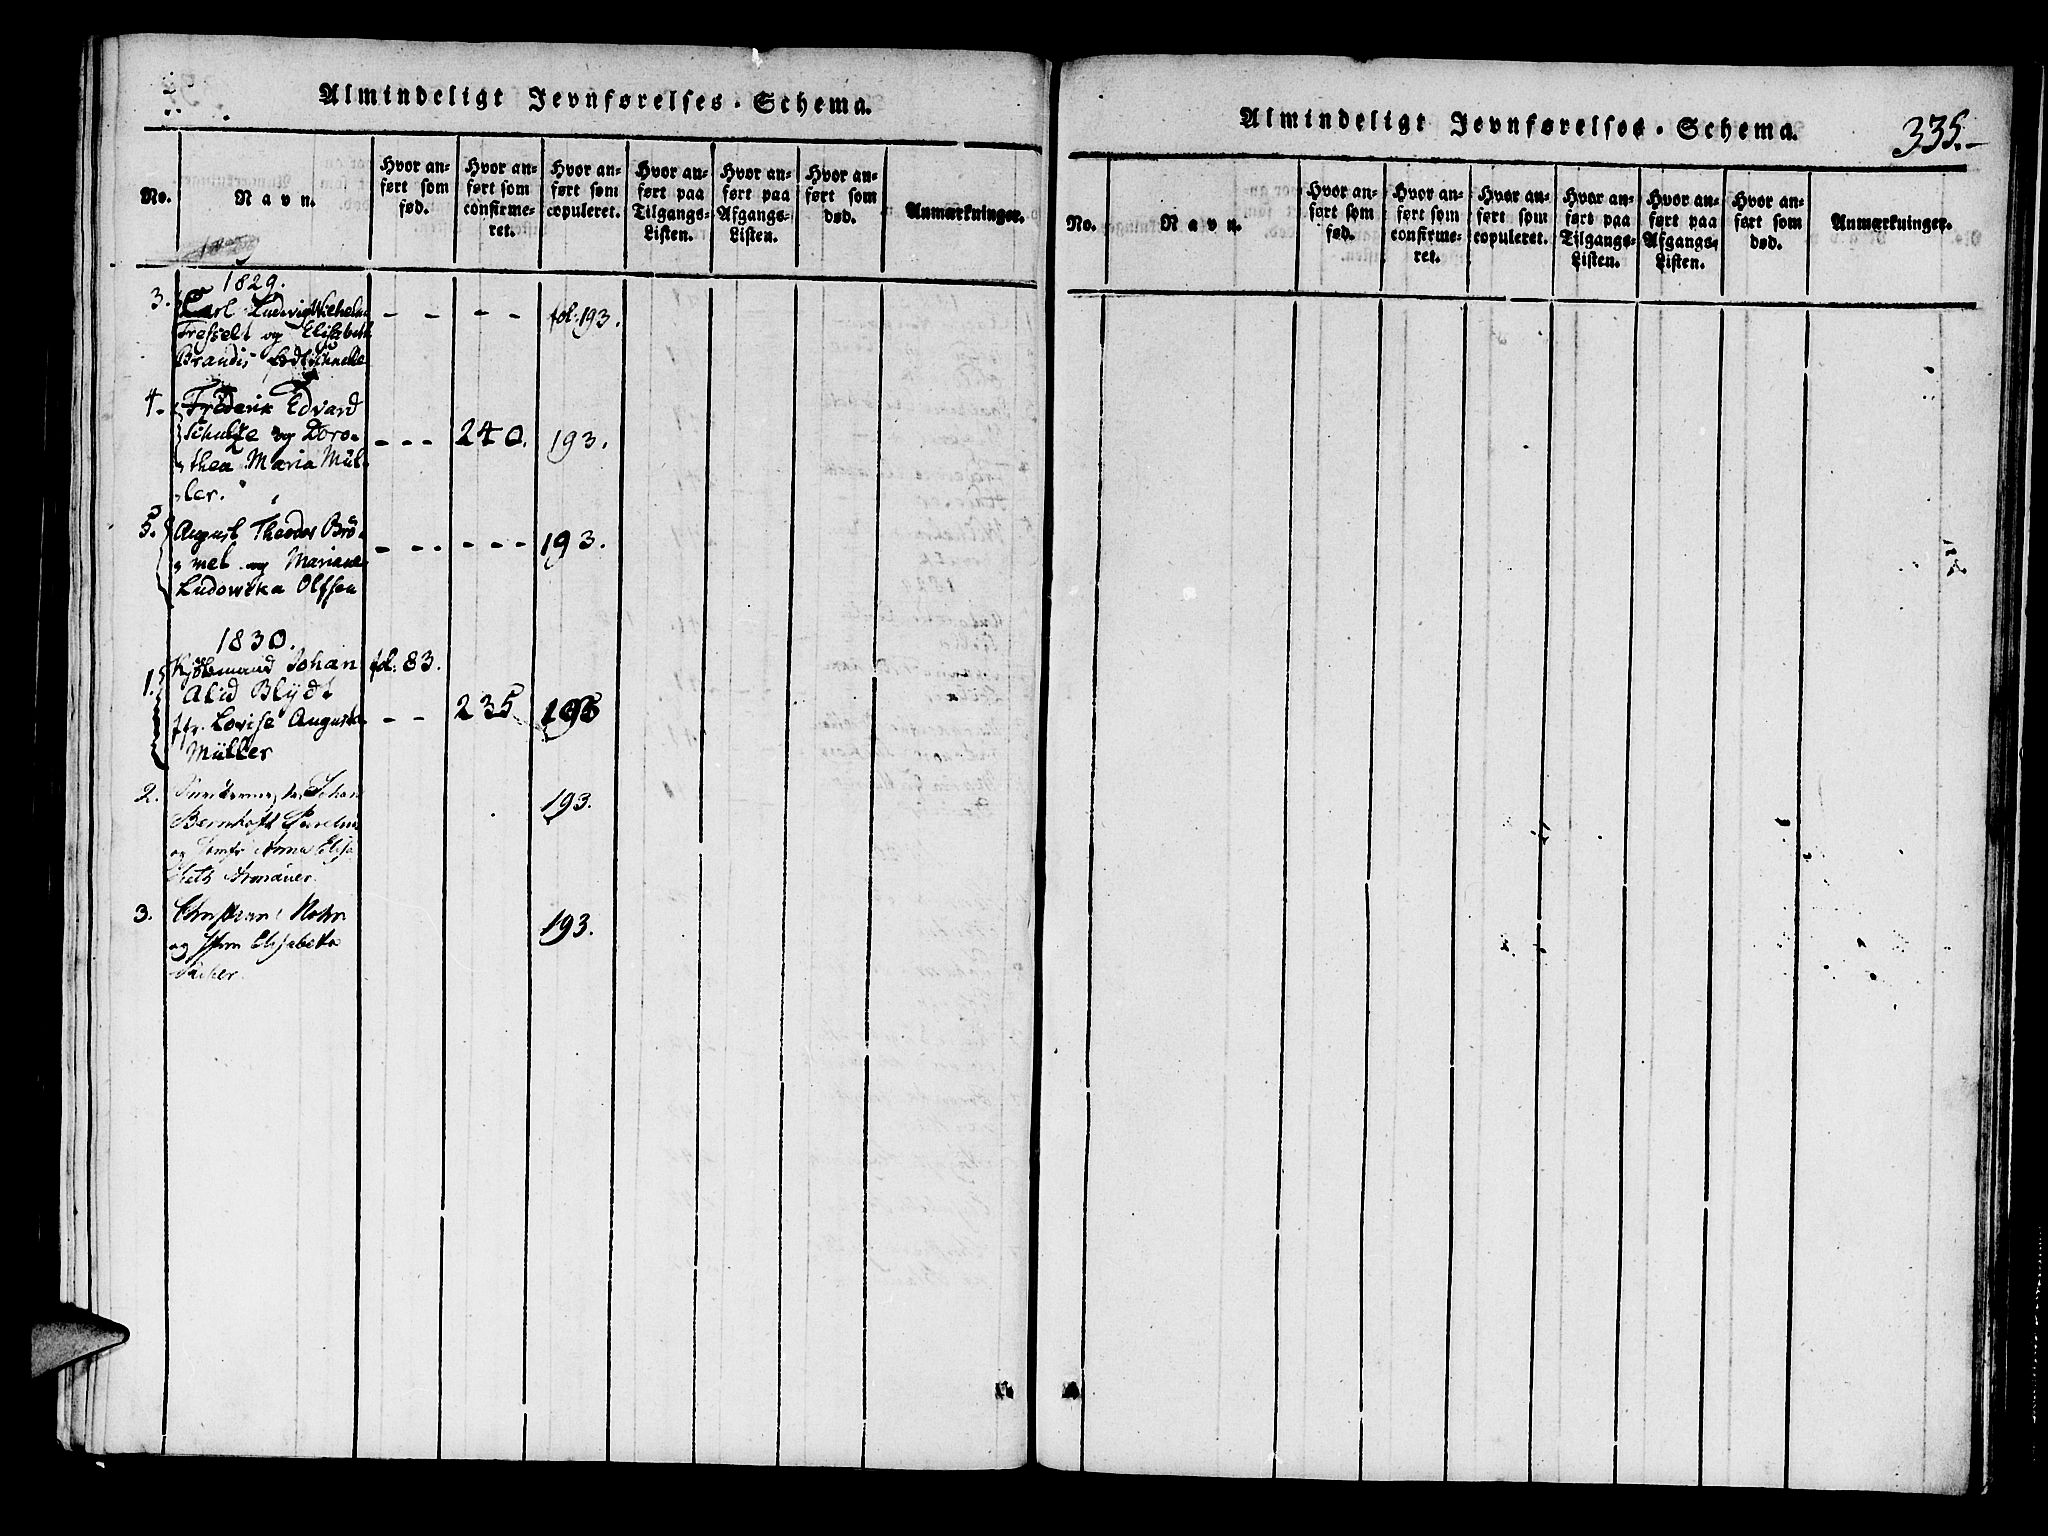 Almindeligt Jevnførelses-Schema.
No.
Navn.
Hvor anført som fød.
Hvor anført som confirmeret.
Hvor anført som copuleret.
Hvor anført paa Tilgangs-Listen.
Hvor anført paa Afgangs-Listen.
Hvor anført som død.
Anmærkninger.
1829.
3. Carl Ludvig Wilhelm - - - - fol: 193.
Tresselt og Elisabeth
Brandis
4. Friderik Edvard
Schultze og Doro- - - - 240. 193.
thea Maria Mül-
ler.
5. August Theodor Brö- - - - - - - 193.
mel og Mariane
Ludowika Olfsen
1830.
1. Kjøbmand Johan fol: 83.
Alid Blydt
Jfr. Lovise Augusta - - 235 193
Müller
2. Johan 193.
Bernhoft
og Jomfr Anna Elisa
beth Kronauer.
3. Christian Hohn 193.
og Jfru Elisabeth
Sucher.
Almindeligt Jevnførelses-Schema.
335.-
No.
Navn.
Hvor anført som fød.
Hvor anført som confirmeret.
Hvor anført som copuleret.
Hvor anført paa Tilgangs-Listen.
Hvor anført paa Afgangs-Listen.
Hvor anført som død.
Anmærkninger.